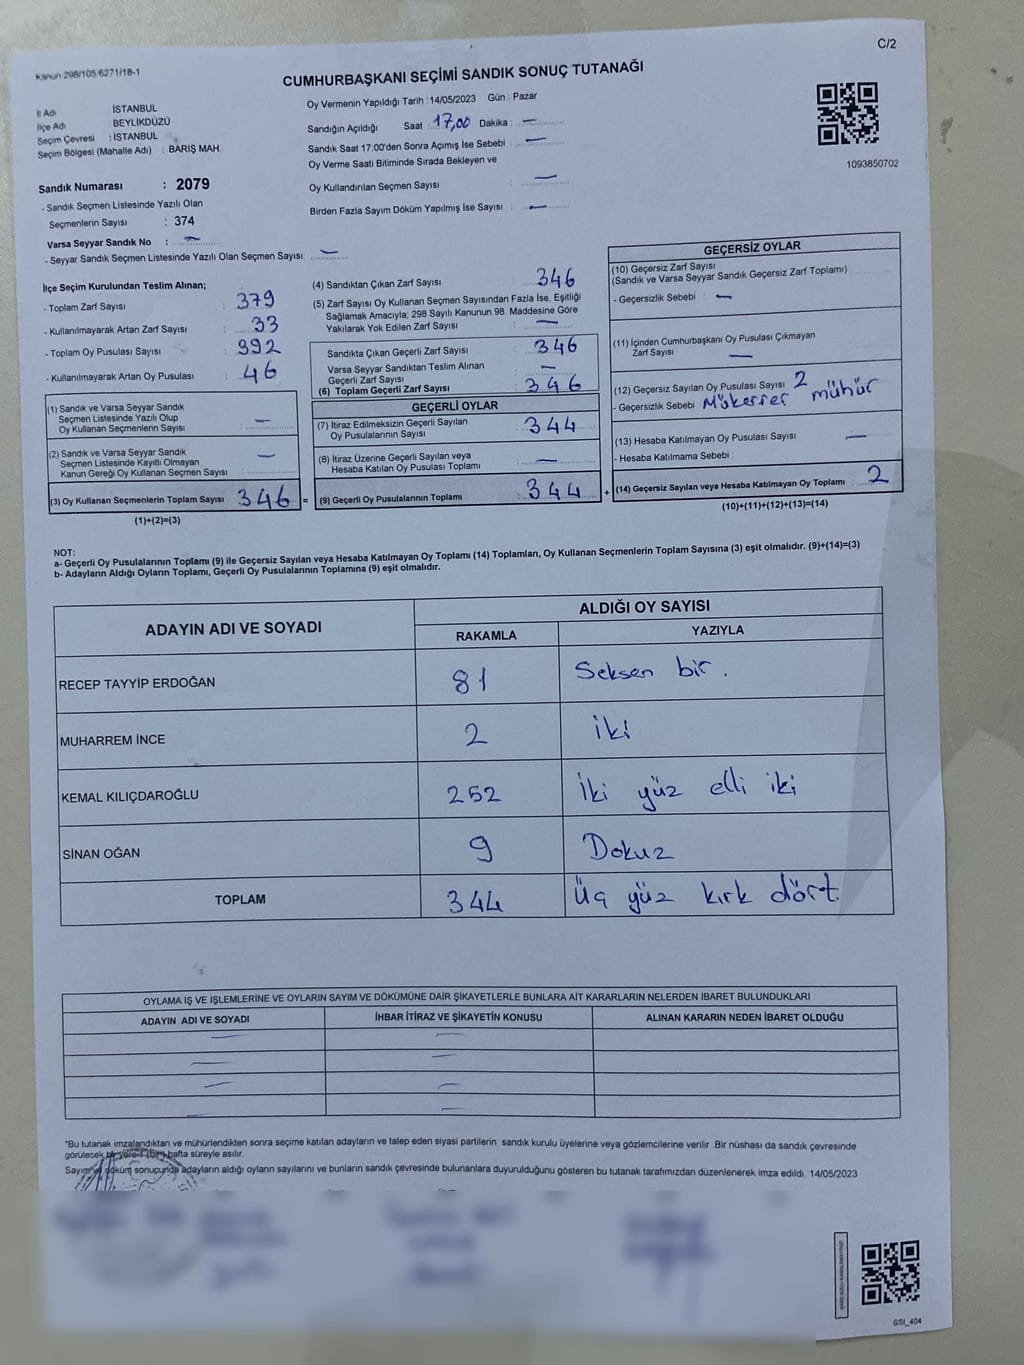 C/2
Kanun 298/105 6271/18-1
CUMHURBAŞKANI SEÇİMİ SANDIK SONUÇ TUTANAĞI
İl Adı İSTANBUL
İlçe Adı BEYLİKDÜZÜ
Seçim Çevresi : İSTANBUL
Seçim Bölgesi (Mahalle Adı) : BARIŞ MAH.
Oy Vermenin Yapıldığı Tarih : 14/05/2023 Gün : Pazar
Sandığın Açıldığı Saat : 17,00 Dakika : —
Sandık Saat 17:00'den Sonra Açımış İse Sebebi : —
Oy Verme Saati Bitiminde Sırada Bekleyen ve
Oy Kullandırılan Seçmen Sayısı : —
Birden Fazla Sayım Döküm Yapılmış İse Sayısı : —
1093850702
Sandık Numarası : 2079
- Sandık Seçmen Listesinde Yazılı Olan
Seçmenlerin Sayısı : 374
Varsa Seyyar Sandık No : —
- Seyyar Sandık Seçmen Listesinde Yazılı Olan Seçmen Sayısı: —
İlçe Seçim Kurulundan Teslim Alınan;
- Toplam Zarf Sayısı : 379
- Kullanılmayarak Artan Zarf Sayısı : 33
- Toplam Oy Pusulası Sayısı : 392
- Kullanılmayarak Artan Oy Pusulası : 46
(1) Sandık ve Varsa Seyyar Sandık
Seçmen Listesinde Yazılı Olup
Oy Kullanan Seçmenlerin Sayısı : —
(2) Sandık ve Varsa Seyyar Sandık
Seçmen Listesinde Kayıtlı Olmayan
Kanun Gereği Oy Kullanan Seçmen Sayısı : —
(3) Oy Kullanan Seçmenlerin Toplam Sayısı 346 =
(1)+(2)=(3)
(4) Sandıktan Çıkan Zarf Sayısı : 346
(5) Zarf Sayısı Oy Kullanan Seçmen Sayısından Fazla İse, Eşitliği
Sağlamak Amacıyla; 298 Sayılı Kanunun 98. Maddesine Göre
Yakılarak Yok Edilen Zarf Sayısı : —
Sandıkta Çıkan Geçerli Zarf Sayısı : 346
Varsa Seyyar Sandıktan Teslim Alınan
Geçerli Zarf Sayısı : —
(6) Toplam Geçerli Zarf Sayısı : 346
GEÇERLİ OYLAR
(7) İtiraz Edilmeksizin Geçerli Sayılan
Oy Pusulalarının Sayısı : 344
(8) İtiraz Üzerine Geçerli Sayılan veya
Hesaba Katılan Oy Pusulası Toplamı : —
(9) Geçerli Oy Pusulalarının Toplamı : 344 +
GEÇERSİZ OYLAR
(10) Geçersiz Zarf Sayısı
(Sandık ve Varsa Seyyar Sandık Geçersiz Zarf Toplamı)
- Geçersizlik Sebebi : —
(11) İçinden Cumhurbaşkanı Oy Pusulası Çıkmayan
Zarf Sayısı : —
(12) Geçersiz Sayılan Oy Pusulası Sayısı : 2
- Geçersizlik Sebebi Mükerrer mühür
(13) Hesaba Katılmayan Oy Pusulası Sayısı : —
- Hesaba Katılmama Sebebi :
(14) Geçersiz Sayılan veya Hesaba Katılmayan Oy Toplamı : 2
(10)+(11)+(12)+(13)=(14)
NOT:
a- Geçerli Oy Pusulalarının Toplamı (9) ile Geçersiz Sayılan veya Hesaba Katılmayan Oy Toplamı (14) Toplamları, Oy Kullanan Seçmenlerin Toplam Sayısına (3) eşit olmalıdır. (9)+(14)=(3)
b- Adayların Aldığı Oyların Toplamı, Geçerli Oy Pusulalarının Toplamına (9) eşit olmalıdır.
ADAYIN ADI VE SOYADI ALDIĞI OY SAYISI
RAKAMLA YAZIYLA
RECEP TAYYİP ERDOĞAN 81 Seksen bir.
MUHARREM İNCE 2 iki
KEMAL KILIÇDAROĞLU 252 iki yüz elli iki
SİNAN OĞAN 9 Dokuz
TOPLAM 344 Üç yüz kırk dört.
OYLAMA İŞ VE İŞLEMLERİNE VE OYLARIN SAYIM VE DÖKÜMÜNE DAİR ŞİKAYETLERLE BUNLARA AİT KARARLARIN NELERDEN İBARET BULUNDUKLARI
ADAYIN ADI VE SOYADI İHBAR İTİRAZ VE ŞİKAYETİN KONUSU ALINAN KARARIN NEDEN İBARET OLDUĞU
— —
— —
— —
— —
*Bu tutanak imzalandıktan ve mühürlendikten sonra seçime katılan adayların ve talep eden siyasi partilerin sandık kurulu üyelerine veya gözlemcilerine verilir. Bir nüshası da sandık çevresinde
görülecek bir yere 1 (bir) hafta süreyle asılır.
Sayım ve döküm sonucunda adayların aldığı oyların sayılarını ve bunların sandık çevresinde bulunanlara duyurulduğunu gösteren bu tutanak tarafımızdan düzenlenerek imza edildi. 14/05/2023
SSI_404